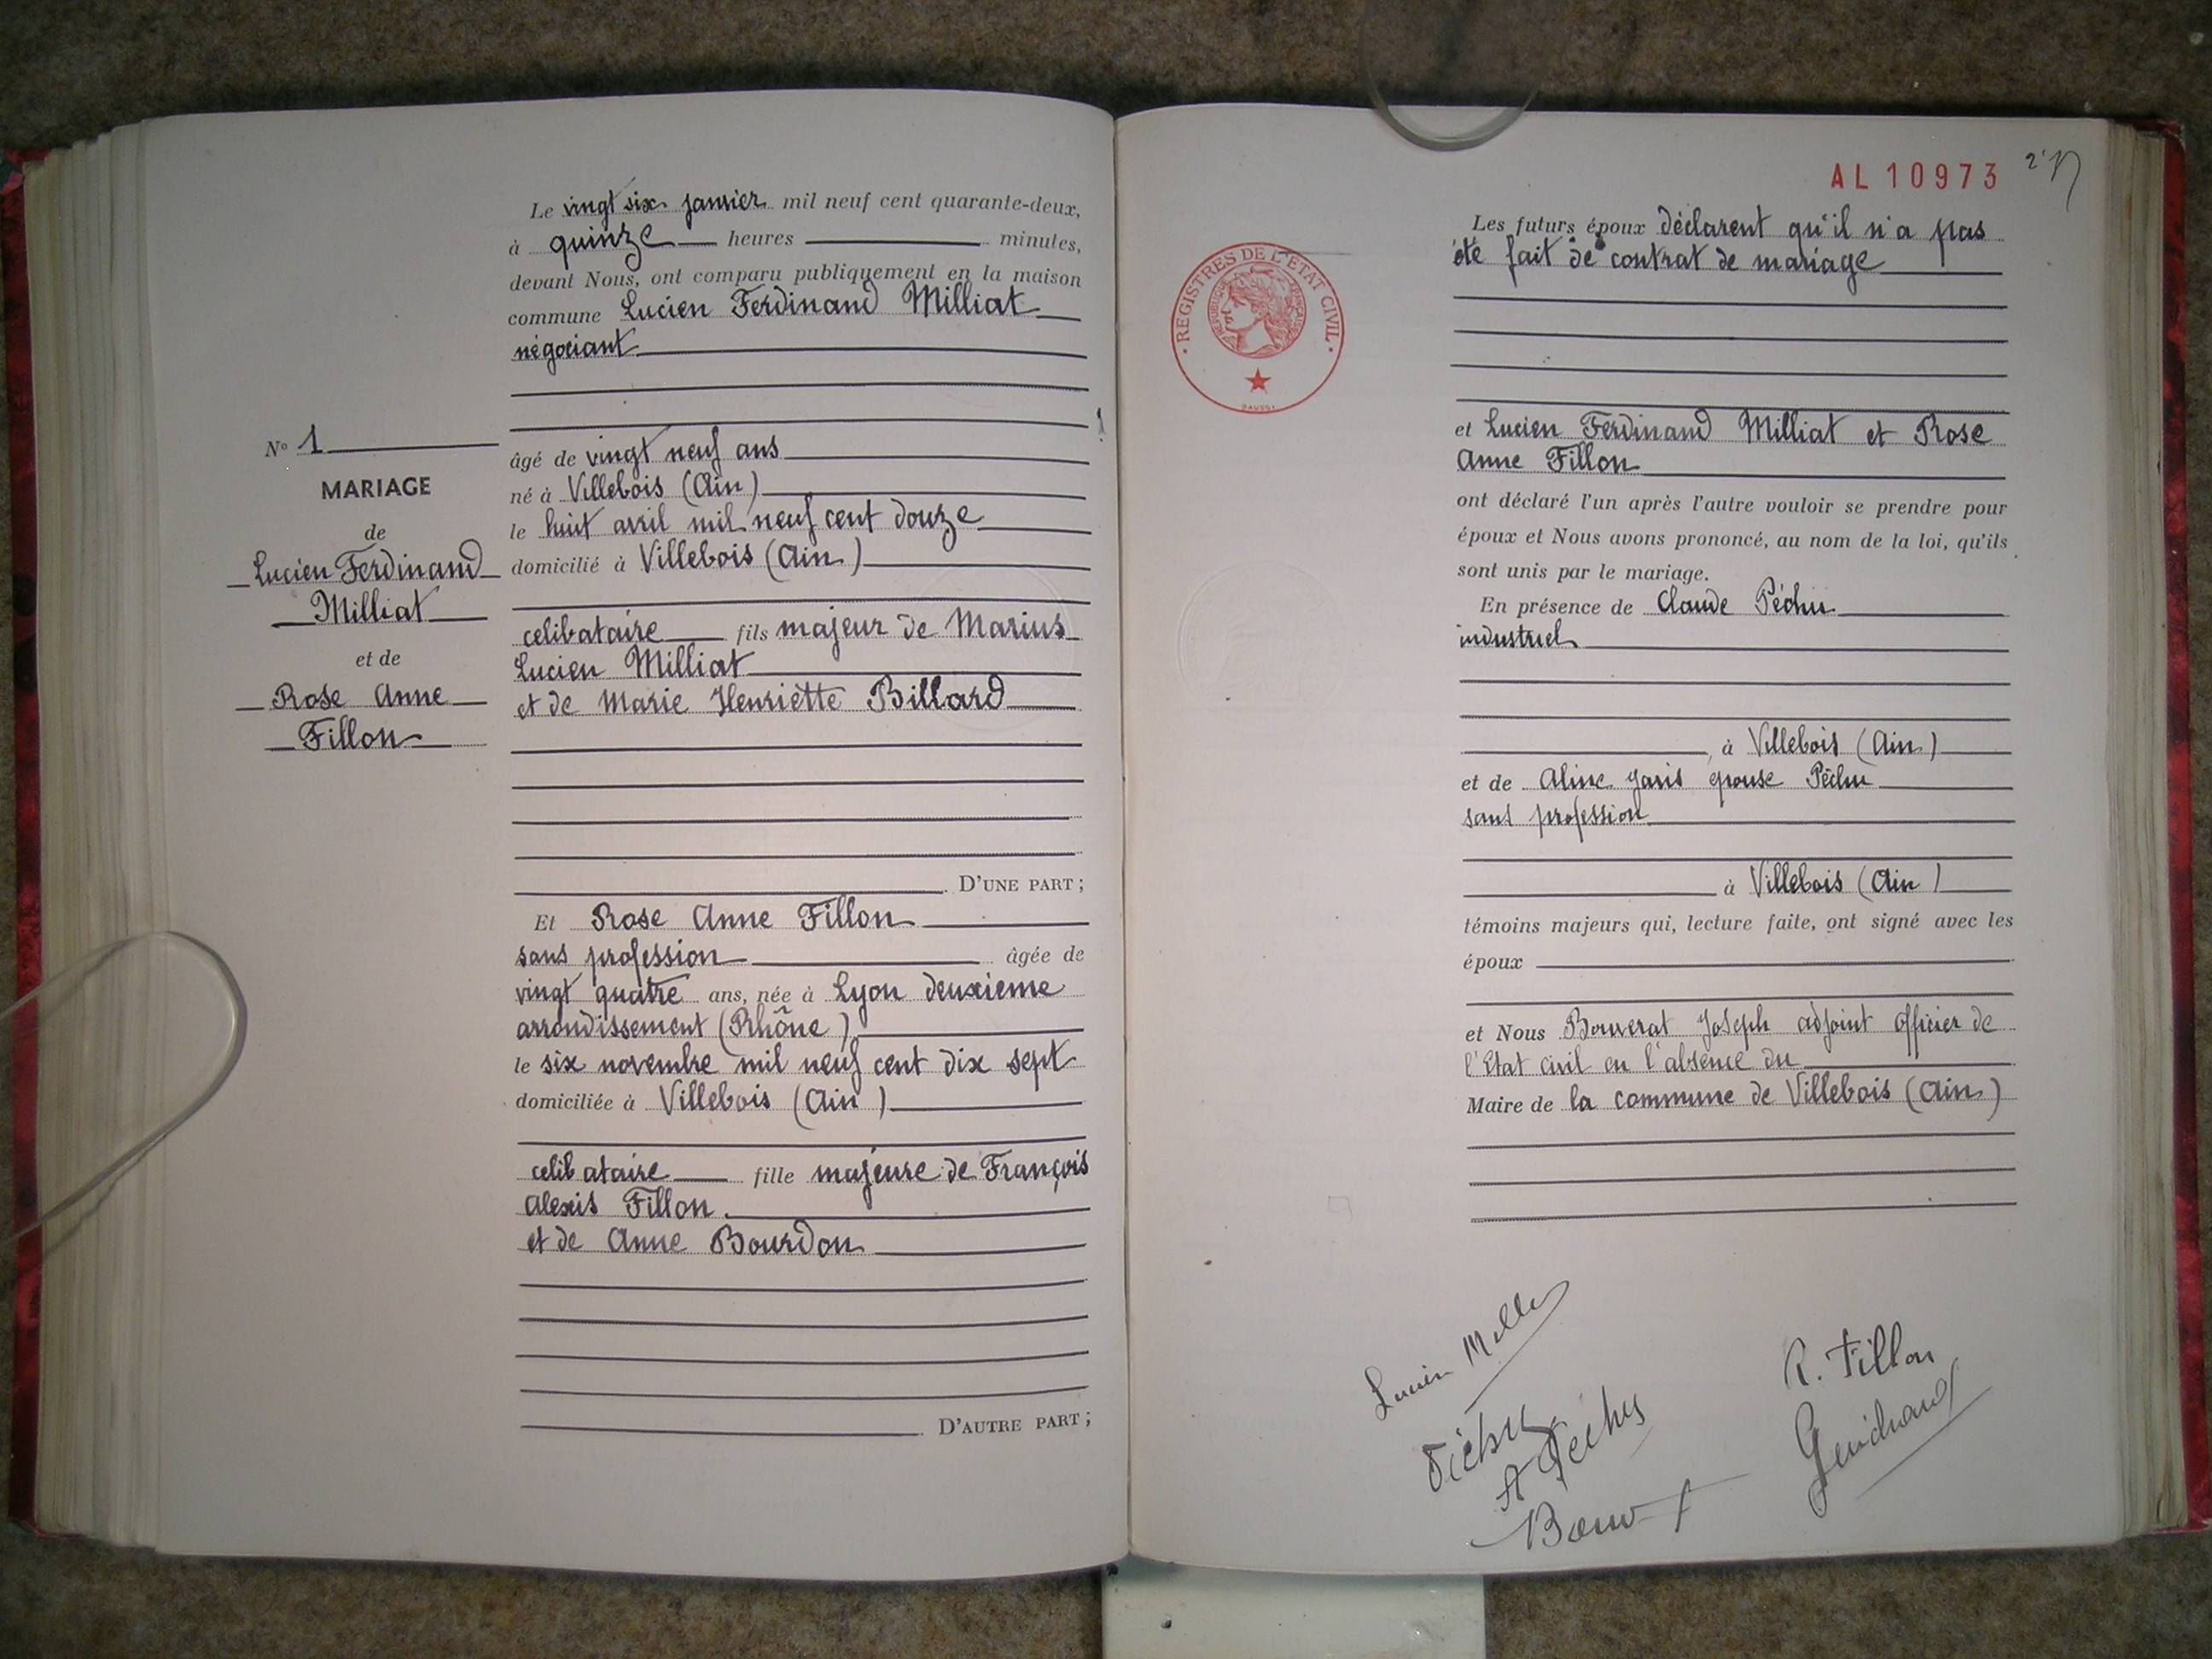 Le vingt six janvier mil neuf cent quarante-deux,
à quinze heures minutes,
devant Nous, ont comparu publiquement en la maison
commune Lucien Ferdinand Milliat
négociant
âgé de vingt neuf ans
né à Villebois (Ain)
le huit avril mil neuf cent douze
domicilié à Villebois (Ain)
celibataire fils majeur de Marius
Lucien Milliat
et de Marie Henriette Billard
D'UNE PART ;
Et Rose Anne Fillon
sans profession âgée de
vingt quatre ans, née à Lyon deuxieme
arrondissement (Rhône)
le six novembre mil neuf cent dix sept
domiciliée à Villebois (Ain)
celibataire fille majeure de François
Alexis Fillon.
et de Anne Bourdon
D'AUTRE PART ;
No 1
MARIAGE
de
Lucien Ferdinand
Milliat
et de
Rose Anne
Fillon
AL 10973
REGISTRES DE L'ÉTAT CIVIL
RÉPUBLIQUE FRANÇAISE
Les futurs époux déclarent qu'il n'a pas
été fait de contrat de mariage
et Lucien Ferdinand Milliat et Rose
Anne Fillon
ont déclaré l'un après l'autre vouloir se prendre pour
époux et Nous avons prononcé, au nom de la loi, qu'ils
sont unis par le mariage.
En présence de Claude Péchu
industriel
, à Villebois (Ain)
et de Aline Janis épouse Péchu
sans profession
à Villebois (Ain)
témoins majeurs qui, lecture faite, ont signé avec les
époux
et Nous Bouverat Joseph adjoint Officier de
l'Etat civil en l'absence du
Maire de la commune de Villebois (Ain)
Lucien
R. Fillon
A Péchu